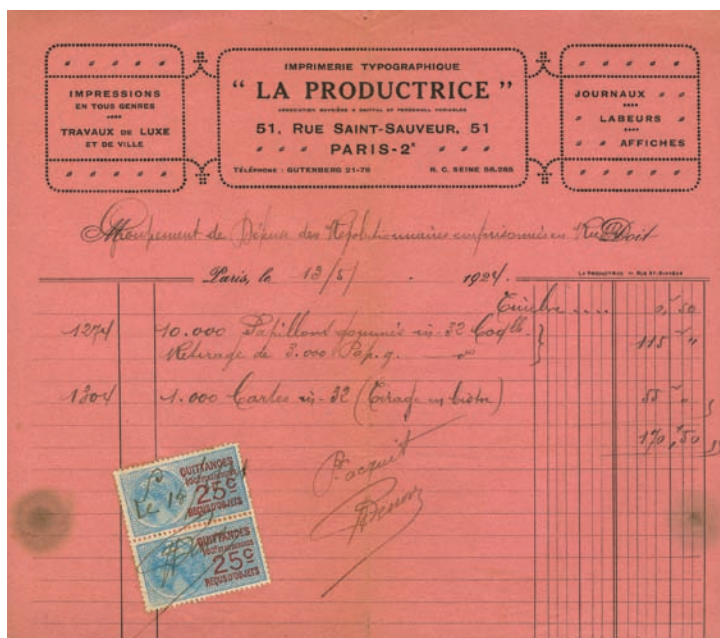 IMPRESSIONS
EN TOUS GENRES
TRAVAUX DE LUXE
ET DE VILLE
IMPRIMERIE TYPOGRAPHIQUE
" LA PRODUCTRICE "
ASSOCIATION OUVRIÈRE A CAPITAL ET PERSONNEL VARIABLES
51, RUE SAINT-SAUVEUR, 51
PARIS-2e
TÉLÉPHONE : GUTENBERG 21-78 R. C. SEINE 58.285
JOURNAUX
LABEURS
AFFICHES
Groupement de Défense des Révolutionnaires emprisonnés en Doit
Paris, le 13/5/ 1924.
LA PRODUCTRICE RUE ST-SAUVEUR
Timbre .... 0,50
1274 10.000 Papillons gommés in-32
Retirage de 3.000 Pap. g. 115 "
1304 1.000 Cartes in-32 (Tirage en bistre) 55 "
170,50
P. acquit
QUITTANCES
25c
REÇUS D'OBJETS
Le 14
QUITTANCES
25c
REÇUS D'OBJETS